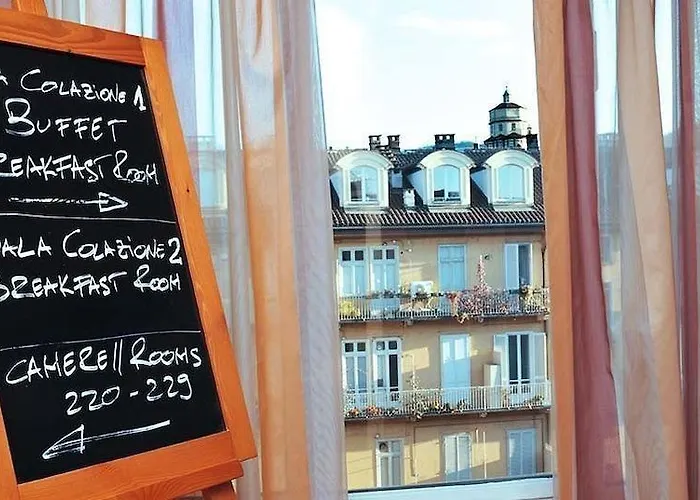 COLAZIONE 1
BUFFET
BREAKFAST ROOM
SALA COLAZIONE 2
BREAKFAST ROOM
CAMERE // ROOMS
220 - 229